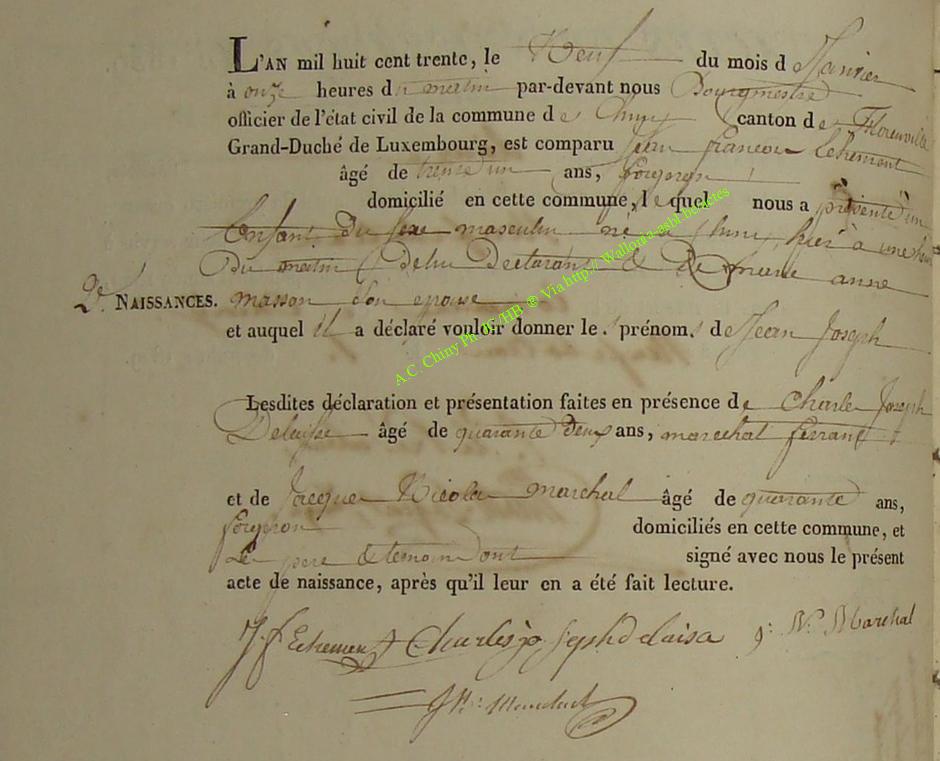 L'AN mil huit cent trente, le Neuf du mois d Janvier
à onze heures du matin par-devant nous Bourgmestre
officier de l'état civil de la commune de Chiny canton de Florenville
Grand-Duché de Luxembourg, est comparu Jean françois Lehement
âgé de trente un ans, forgeron
domicilié en cette commune, lequel nous a présenté un
Enfant du sexe masculin né a Chiny, hier à une heure
du matin de lui Declarant & De marie anne
2e. NAISSANCES. masson son epouse
et auquel il a déclaré vouloir donner les prénoms de Jean Joseph
Lesdites déclaration et présentation faites en présence de Charle Joseph
Delaisse âgé de quarante deux ans, marechal ferrant
et de Jacque Nicola marchal âgé de quarante ans,
forgeron domiciliés en cette commune, et
Le pere & temoin ont signé avec nous le présent
acte de naissance, après qu'il leur en a été fait lecture.
J. f Echement Charles jo seph d elaisa j: N. Marchal
A.C. Chiny Ph JG/HB ® Via http:// Wallonia-asbl-benactes